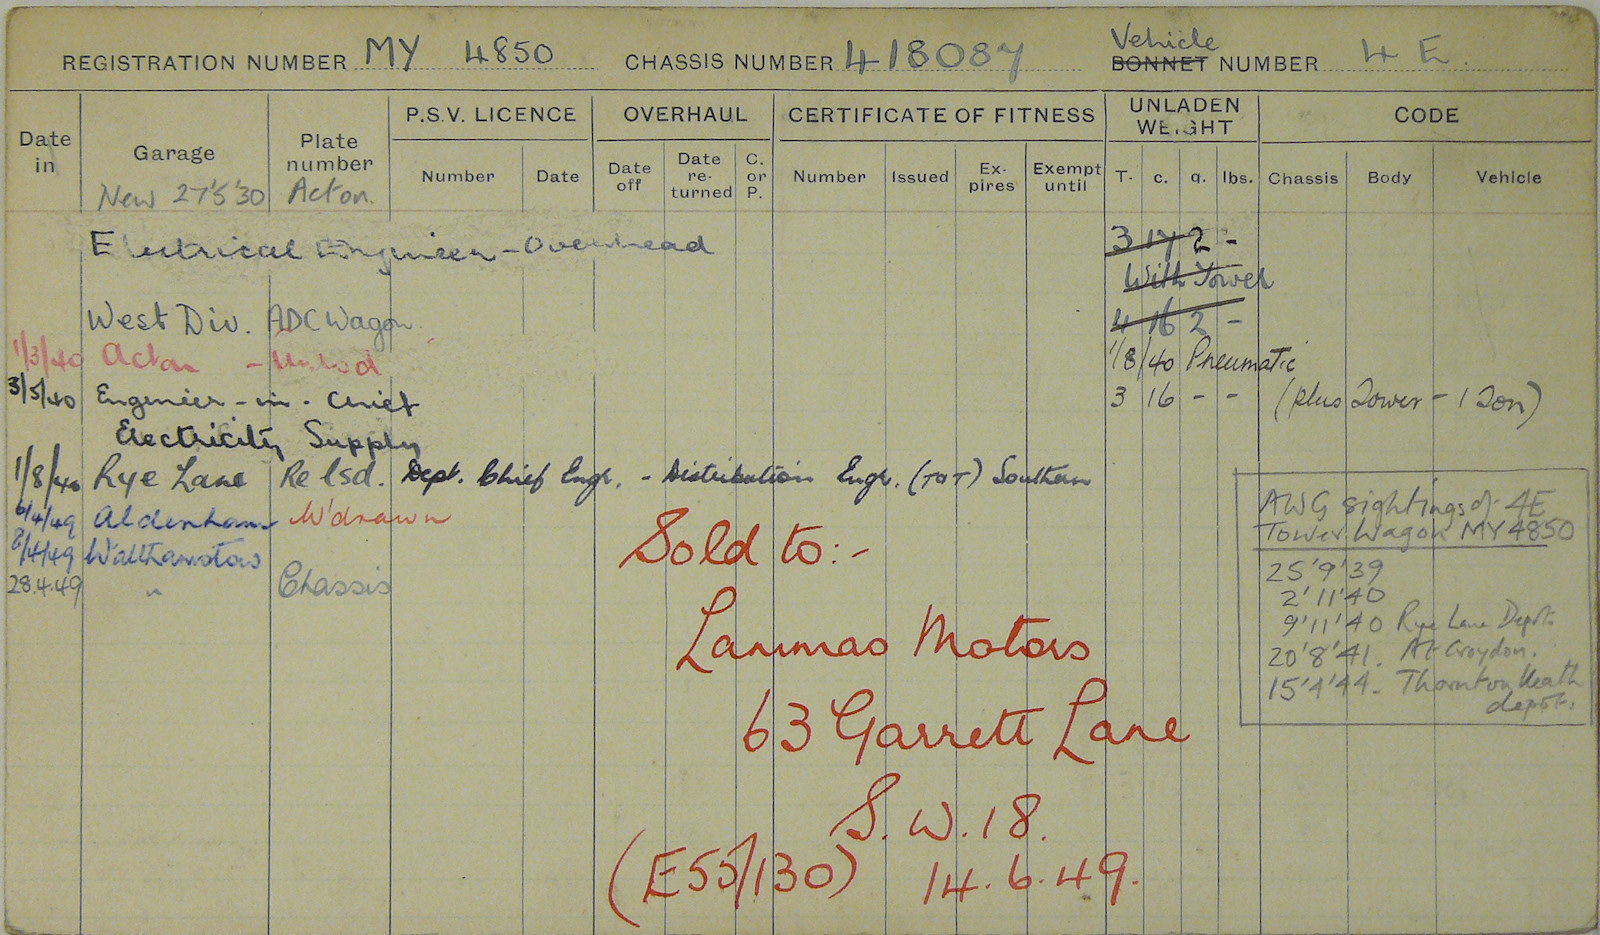 REGISTRATION NUMBER MY 4850 CHASSIS NUMBER 418087 Vehicle BONNET NUMBER 4 E.
Date in Garage Plate number P.S.V. LICENCE OVERHAUL CERTIFICATE OF FITNESS UNLADEN WEIGHT CODE
Number Date Date off Date re-turned C. or P. Number Issued Ex-pires Exempt until T. c. q. lbs. Chassis Body Vehicle
New 27'5'30 Acton.
Electrical Engineer - Overhead 3 17 2 -
With Tower
West Div. ADC Wagon. 4 16 2 -
1/3/40 Acton - 1/8/40 Pneumatic
3/5/40 Engineer-in-Chief 3 16 - - (plus Tower - 1 Ton)
Electricity Supply
1/8/40 Rye Lane Re lsd. Dept. Chief Engr. - Distribution Engr. (T OT) Southern
6/4/49 Aldenham W'drawn
8/4/49 Walthamstow
28.4.49 " Chassis
Sold to:-
Lammas Motors
63 Garrett Lane
S.W.18.
(E55/130) 14.6.49.
AWG sightings of 4E
Tower Wagon MY 4850
25'9'39
2'11'40
9'11'40 Rye Lane Depot.
20'8'41. At Croydon.
15'4'44. Thornton Heath
depot.